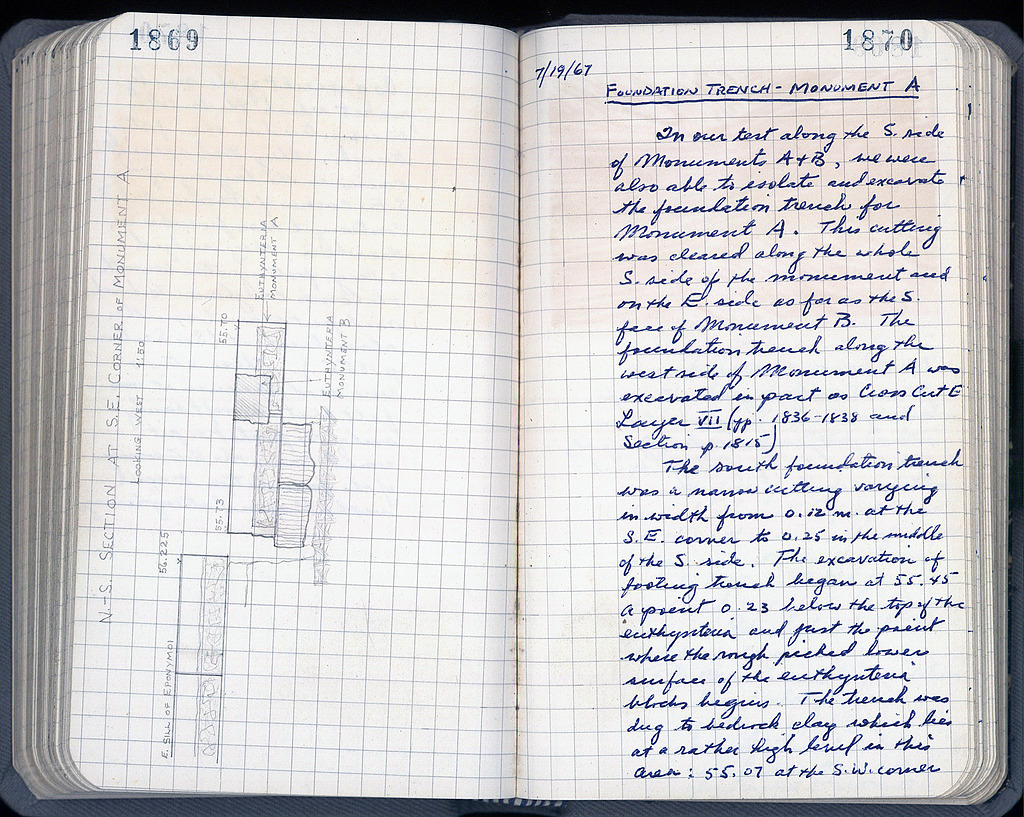 1869
N-S. SECTION AT S.E. CORNER OF MONUMENT A
LOOKING WEST 1:50
E. SILL OF EPONYMOI
56.225
55.73
55.70
EUTHYNTERIA
MONUMENT A
EUTHYNTERIA
MONUMENT B
1870
7/19/67
FOUNDATION TRENCH - MONUMENT A
In our test along the S. side
of Monuments A + B, we were
also able to isolate and excavate
the foundation trench for
Monument A. This cutting
was cleared along the whole
S. side of the monument and
on the E. side as far as the S.
face of Monument B. The
foundation trench along the
west side of Monument A was
excavated in part as Cross Cut E
Layer VII (pp. 1836-1838 and
Section p. 1815)
The south foundation trench
was a narrow cutting varying
in width from 0.12 m. at the
S.E. corner to 0.25 in the middle
of the S. side. The excavation of
footing trench began at 55.45
a point 0.23 below the top of the
euthynteria and just the point
where the rough picked lower
surface of the euthynteria
blocks begins. The trench was
dug to bedrock clay which lies
at a rather high level in this
area: 55.07 at the S.W. corner